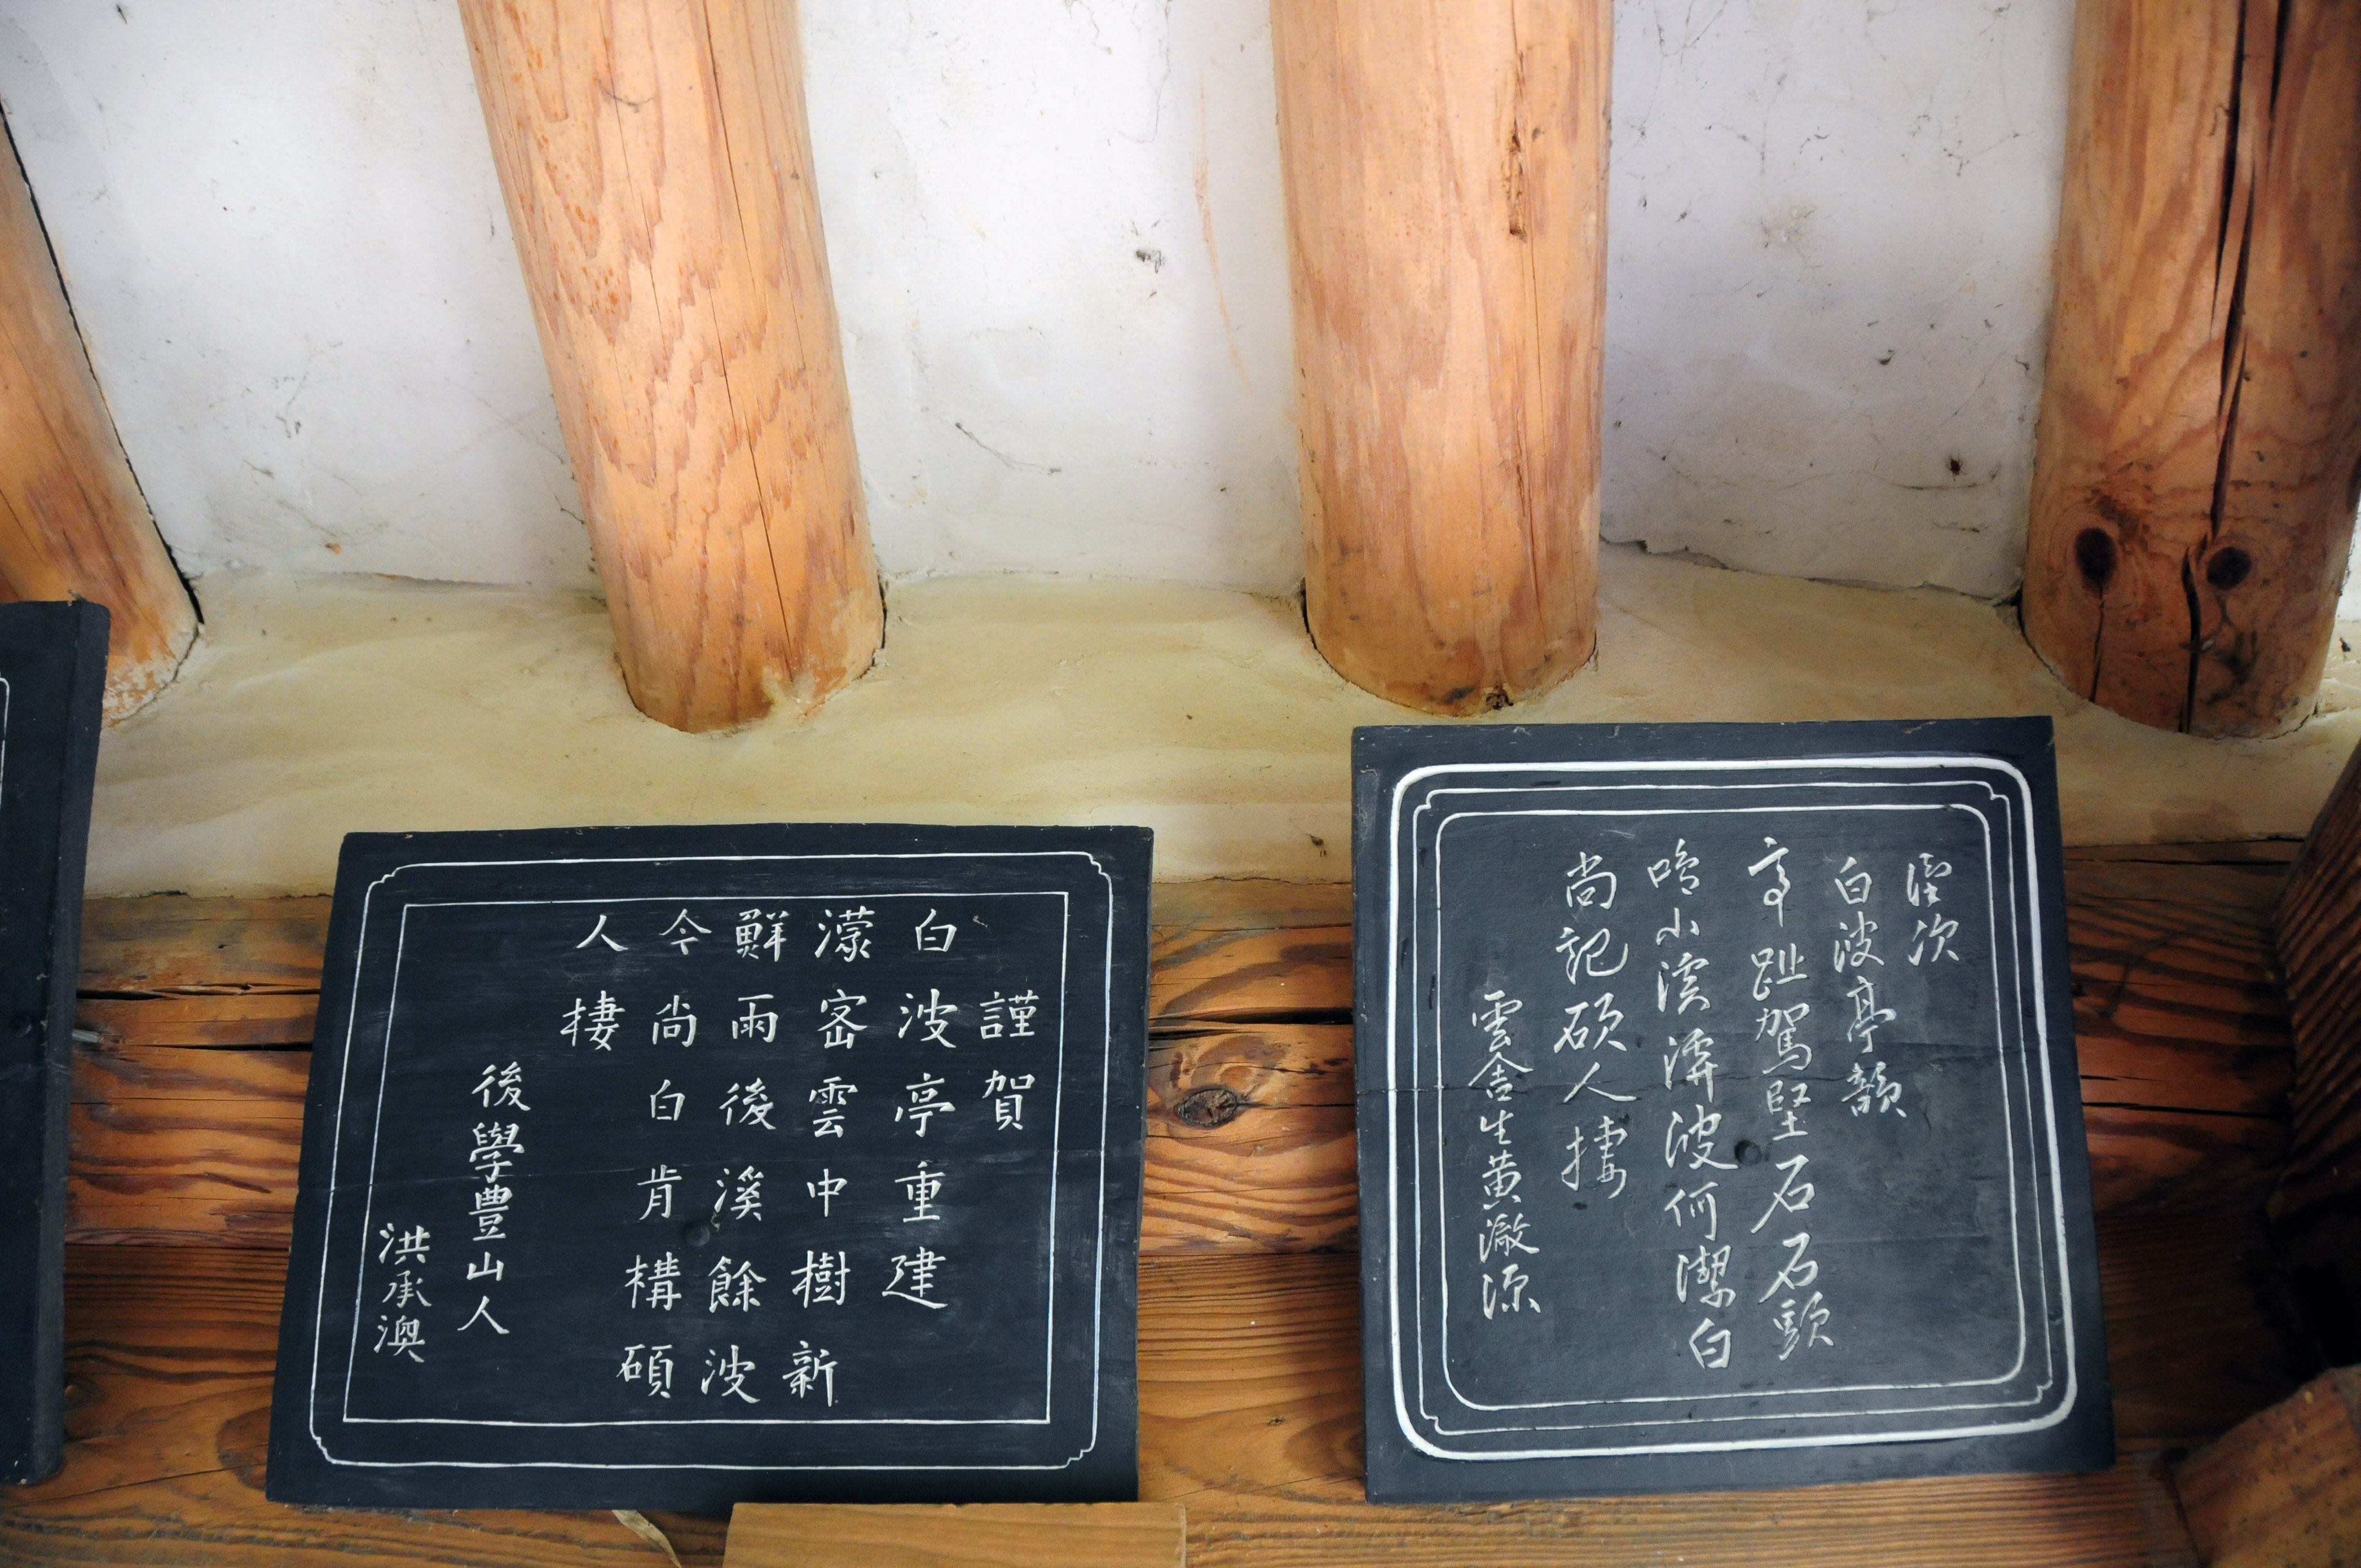 謹次
白波亭韻
亭趾駕堅石石頭
吟小溪波何潔白
尚記碩人捿
雲舍生黃澈源
謹賀
白波亭重建
濛密雲中樹新
鮮雨後溪餘波
今尚白肯構碩
人棲
後學豊山人
洪承澳